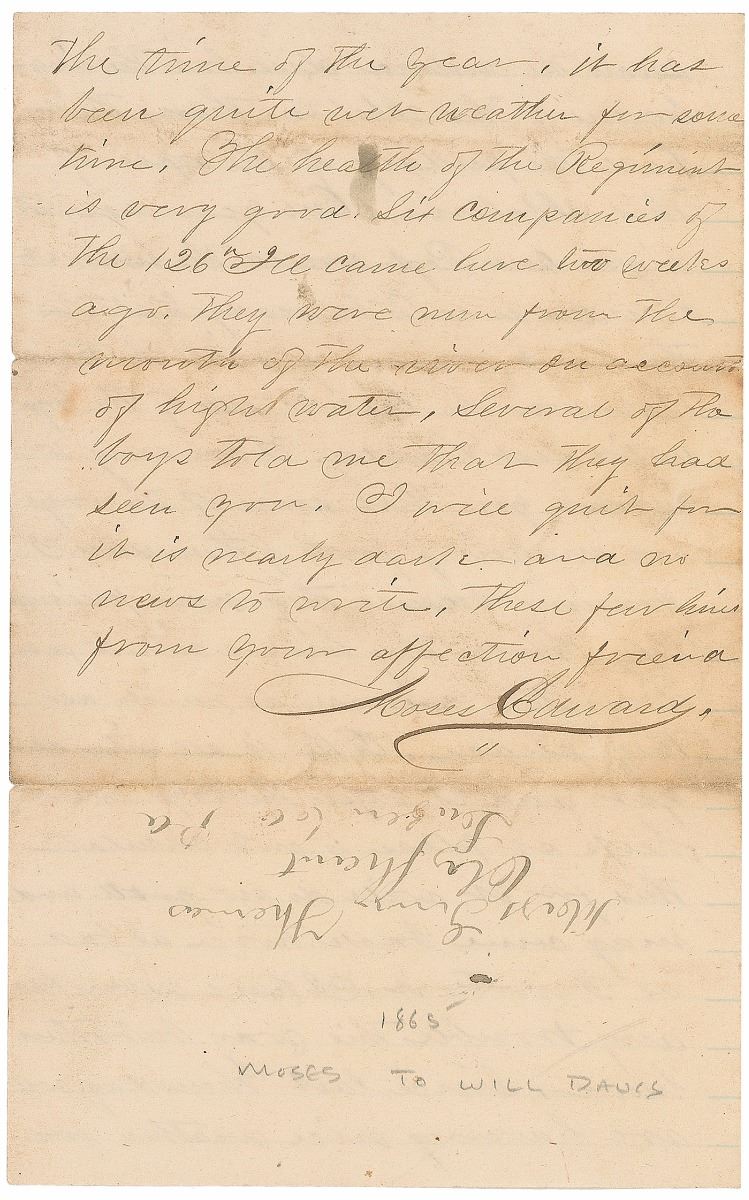 The time of the year, it has
been quite wet weather for some
time. The health of the Regiment
is very good. Six companies of
the 126" Ill came here two weeks
ago. they were run from the
mouth of the river on account
of high water, Several of the
boys told me that they had
seen you. I will quit for
it is nearly dark and no
news to write, These few lines
from your affection friend
Moses Edwards.
Miss Thomas
Pa
1865
MOSES TO WILL DAVIS